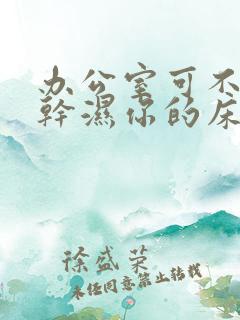 办公室可不
幹濕你的床
徐盛荣
未经同意禁止转载